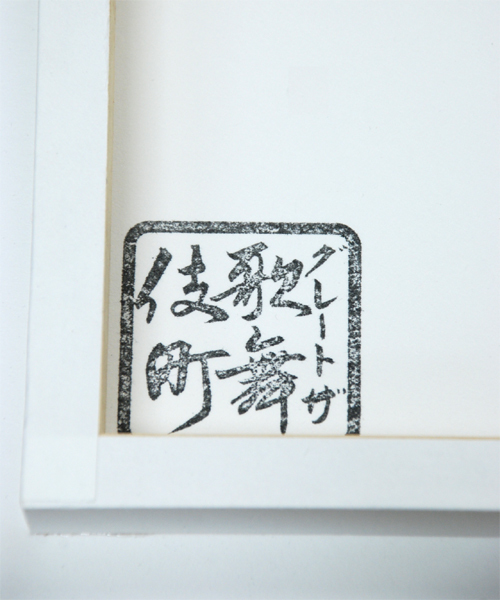 グレートザ
歌舞
伎町